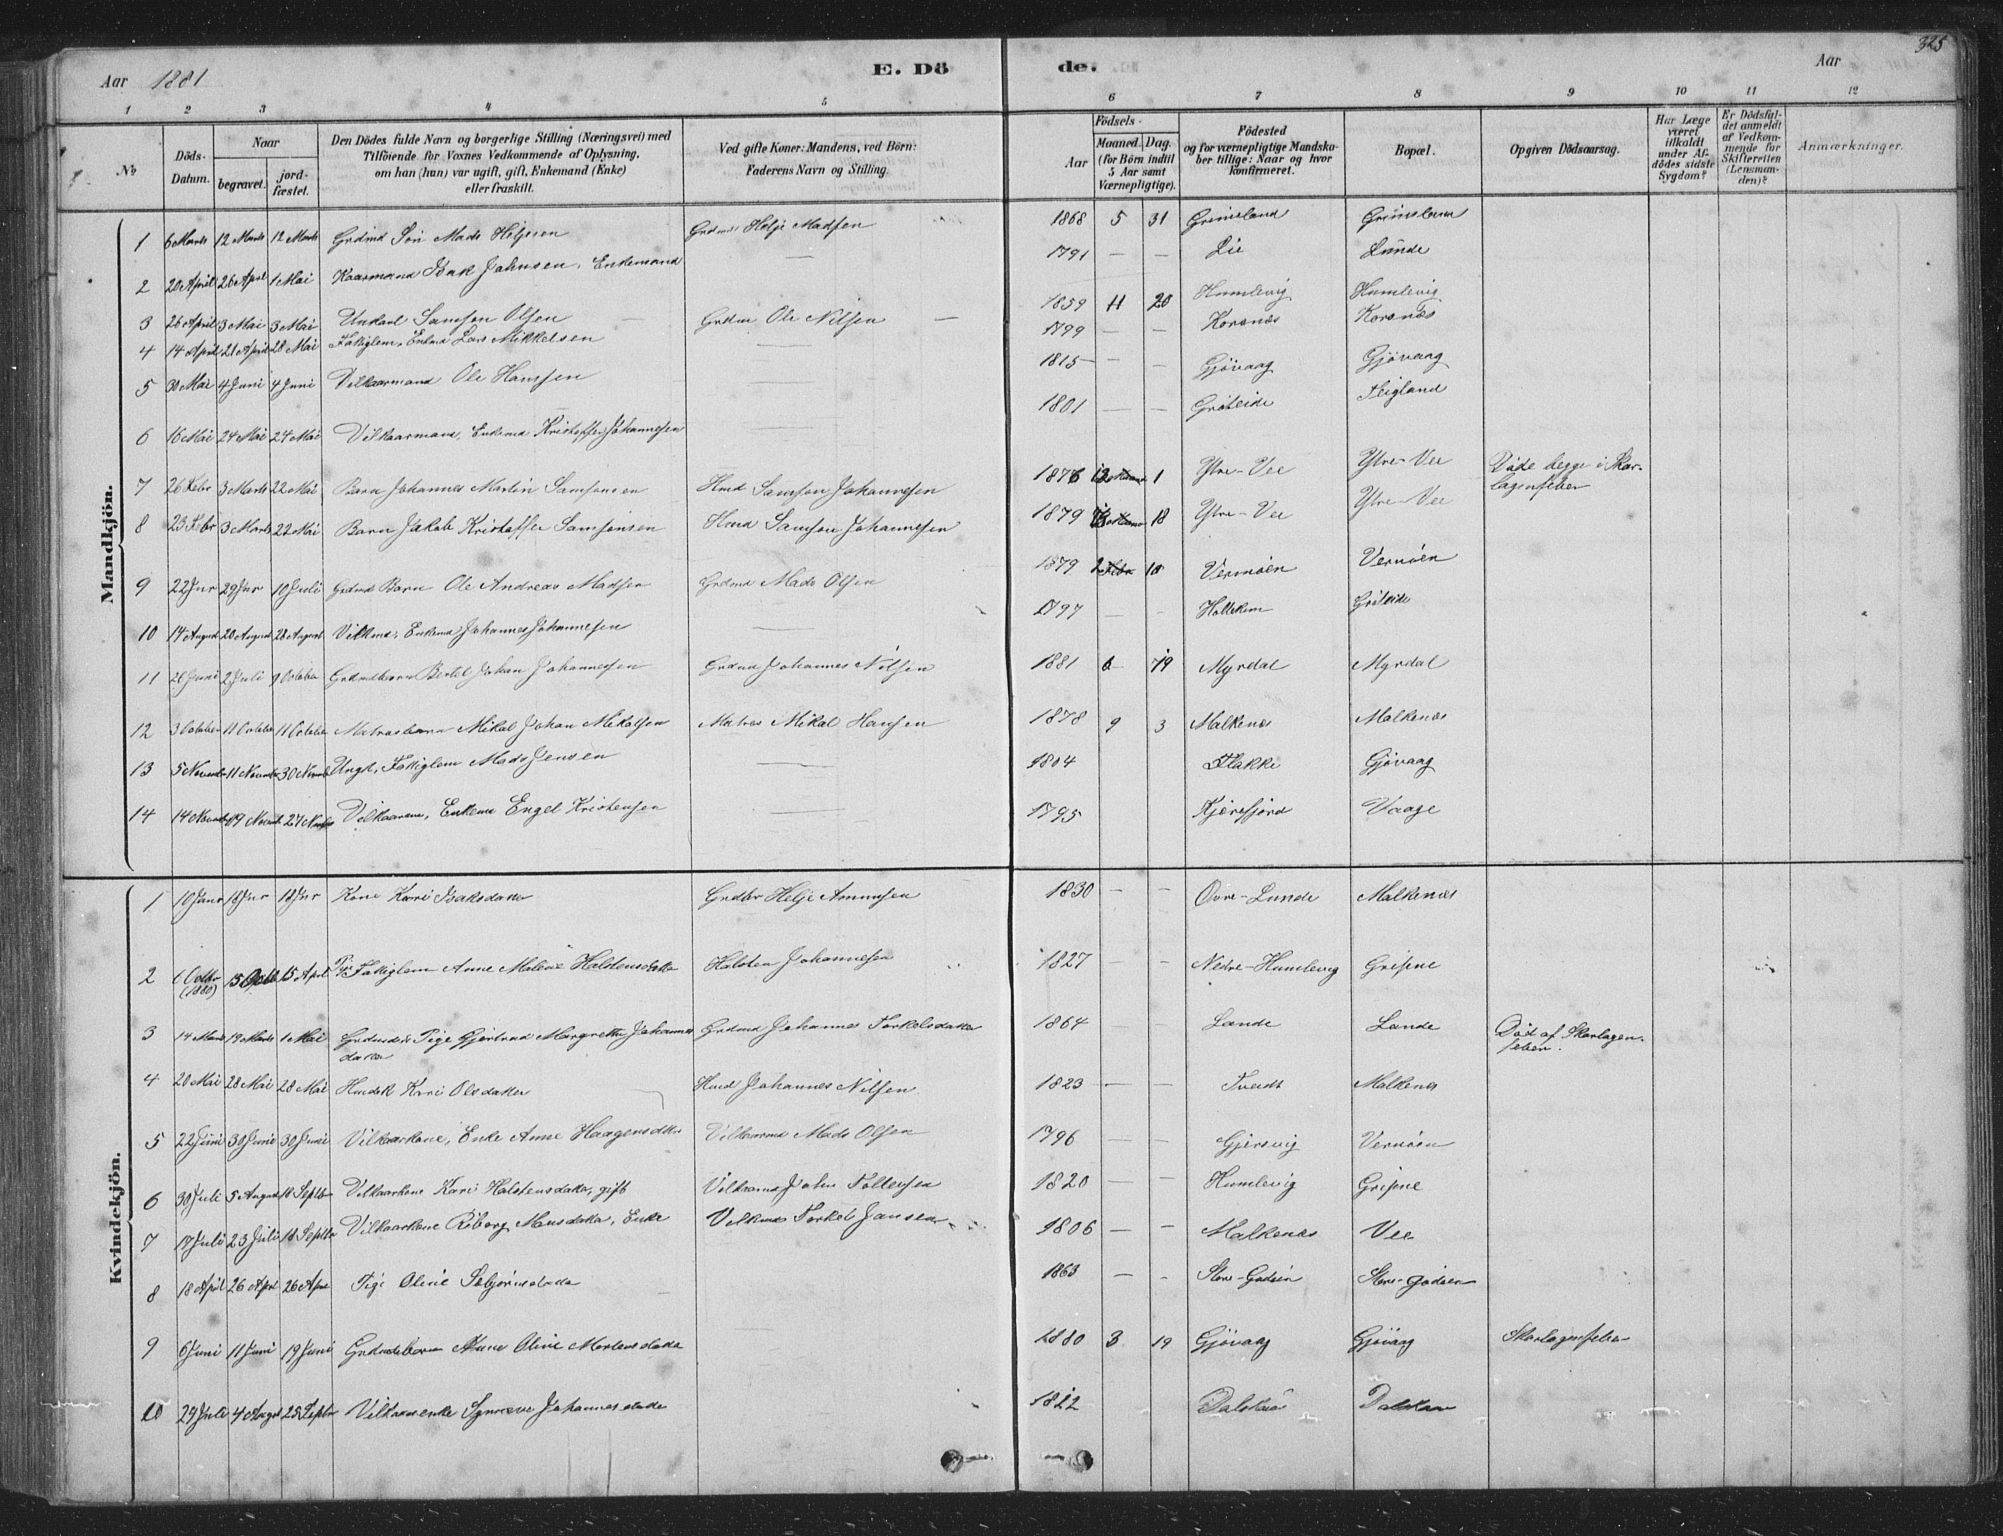 325
Aar 1881 E. Dö de. Aar
1 2 3 4 5 6 7 8 9 10 11 12
№
Döds-Datum.
Naar
begravet.
jord-fæstet.
Den Dödes fulde Navn og borgerlige Stilling (Næringsvei) med
Tilföiende for Voxnes Vedkommende af Oplysning,
om han (hun) var ugift, gift, Enkemand (Enke)
eller fraskilt.
Ved gifte Koner: Mandens, ved Börn:
Faderens Navn og Stilling.
Födsels-
Aar
Maaned. Dag.
(for Börn indtil
5 Aar samt
Værnepligtige).
Födested
og for værnepligtige Mandskaber tillige: Naar og hvor
konfirmeret.
Bopæl.
Opgiven Dödsaarsag.
Har Læge
været
tilkaldt
under Afdödes sidste
Sygdom?
Er Dödsfaldet anmeldt
af Vedkommende for
Skifteretten
(Lensmanden)?
Anmærkninger.
Mandkjön.
1 6 Marts 12 Marts 12 Marts Grdmd Søn Mads Heljesen Grdmd Helje Madsen 1868 5 31 Grimsland
2 20 April 26 April 1 Mai Kaarmand Isak Johnsen, Enkemand — 1791 — — Lie Lunde
3 26 April 3 Mai 3 Mai Unkarl Samson Olsen Ole Nilsen 1859 11 20 Humlevig Humlevig
4 14 April 21 April 28 Mai Fattiglem, Lars Mikkelsen — 1799 — — Korsnæs Korsnæs
5 30 Mai 4 Juni 4 Juni Vilkaarmand Ole Hansen — 1815 — Gjøvaag Gjøvaag
6 16 Mai 24 Mai 24 Mai Vilkaarmand, Enkemd Kristoffer Johannesen — 1801 — — Flygland
7 26 Febr 3 Marts 22 Mai Barn Johannes Martin Samsonsen Hmd Samson Johannesen 1876 12 1 Ytre-Vee Ytre-Vee Døde begge i Skarlagensfeber
8 23 Febr 3 Marts 22 Mai Barn Jakob Kristoffer Samsonsen Hmd Samson Johannesen 1879 18 Ytre-Vee Ytre-Vee
9 22 Jnr 29 Jnr 10 Juli Grdmd Barn Ole Andreas Madsen Grdmd Mads Olsen 1879 2 18 Vernøen Vernøen
10 14 August 20 August 28 August Vilkmd, Enkemd Johannes Johannesen — 1797 — —
11 26 Juni 2 Juli 9 October Grdmdbarn Bertel Johan Johannesen Grdmd Johannes Nilsen 1881 6 19 Myrdal Myrdal
12 3 October 11 October 11 October Matrosbarn Mikal Johan Mikalsen Matros Mikal Hansen 1878 9 3 Malkenæs Malkenæs
13 5 Novembr 11 Novembr 30 Novmb Ungk, Fattiglem Mads Jensen — 1804 Flakke Gjøvaag
14 14 Novmb 19 Novmb 27 Novmb Vilkaarmd, Enkemd Engel Kristensen — 1795 Vaage
Kvindekjön.
1 10 Janr 18 Jnr 18 Jnr Kone Kari Isaksdatter Helje Amunsen 1830 — — Øvre-Lunde Malkenæs
2 Octbr (1880) 15 April Fattiglem Anne Malene Halstensdatter Halsten Johannesen 1827 — — Nedre-Humlevig Gripne
3 14 Marts 19 Marts 1 Mai Pige Gjertrud Margrethe Johannes
datter Grdmd Johannes 1864 — — Lande Lande Død af Skarlagensfeber.
4 20 Mai 28 Mai 28 Mai Kari Olsdatter Hmd Johannes Nilsen 1823 — — Tvedt Malkenes
5 22 Juni 30 Juni 30 Juni Vilkaarkone, Enke Anne Haagensdatter Vilkaarmd Mads Olsen 1796 Gjersvig Vernøen
6 30 Juli 5 August 18 Septbr Vilkaarkone Kari Halstensdatter, gift Vilkaarmd 1820 — — Humlevig Gripne
7 17 Juli 23 Juli 18 Septbr Vilkaarkone Monsdatter, Enke Vilkmd Torkel Jansen 1806 — — Malkenæs Vee
8 18 April 26 April 26 Apr Pige Oline 1863 — — Store-Godøen Store-Godøen
9 6 Juni 11 Juni 19 Juni Anne Oline Mortensdatter 1880 3 19 Gjøvaag Gjøvaag Skarlagensfeber
10 29 Juli 4 Augst 25 Septbr Vilkaarsenke Synneve Johannesdatter 1822